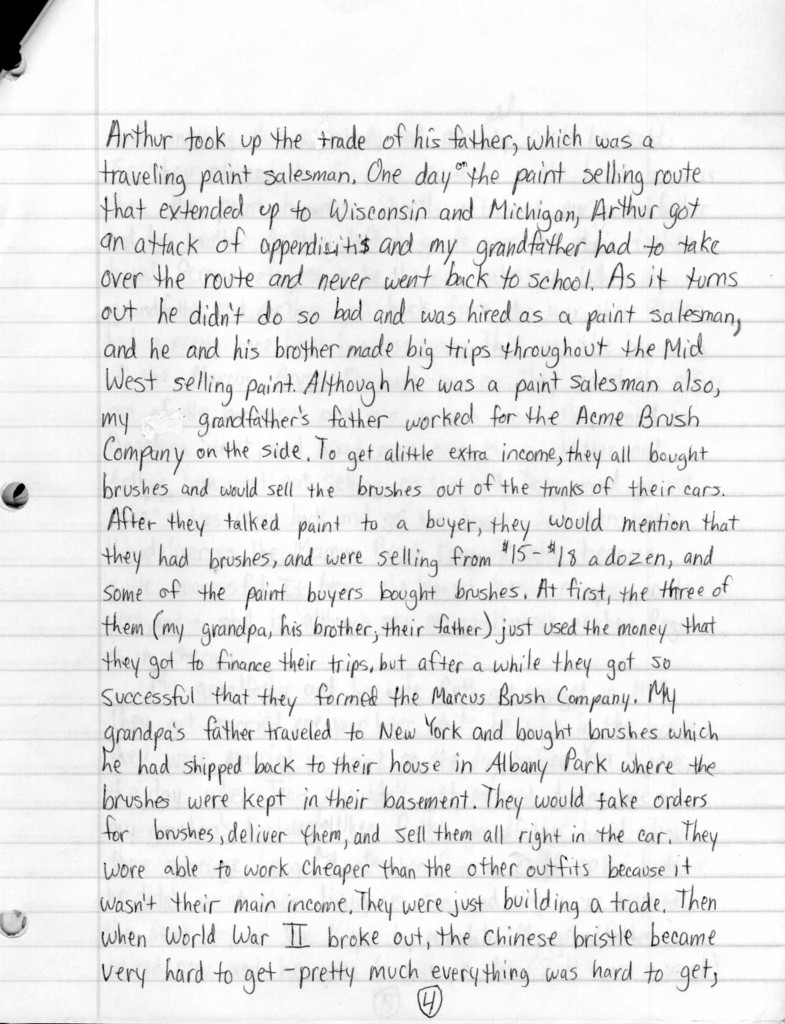 Arthur took up the trade of his father, which was a
traveling paint salesman. One day on the paint selling route
that extended up to Wisconsin and Michigan, Arthur got
an attack of appendisitis and my grandfather had to take
over the route and never went back to school. As it turns
out he didn't do so bad and was hired as a paint salesman,
and he and his brother made big trips throughout the Mid
West selling paint. Although he was a paint salesman also,
my grandfather's father worked for the Acme Brush
Company on the side. To get alittle extra income, they all bought
brushes and would sell the brushes out of the trunks of their cars.
After they talked paint to a buyer, they would mention that
they had brushes, and were selling from $15-$18 a dozen, and
some of the paint buyers bought brushes. At first, the three of
them (my grandpa, his brother, their father) just used the money that
they got to finance their trips, but after a while they got so
successful that they formed the Marcus Brush Company. My
grandpa's father traveled to New York and bought brushes which
he had shipped back to their house in Albany Park where the
brushes were kept in their basement. They would take orders
for brushes, deliver them, and sell them all right in the car. They
were able to work cheaper than the other outfits because it
wasn't their main income. They were just building a trade. Then
when World War II broke out, the Chinese bristle became
very hard to get - pretty much everything was hard to get,
4